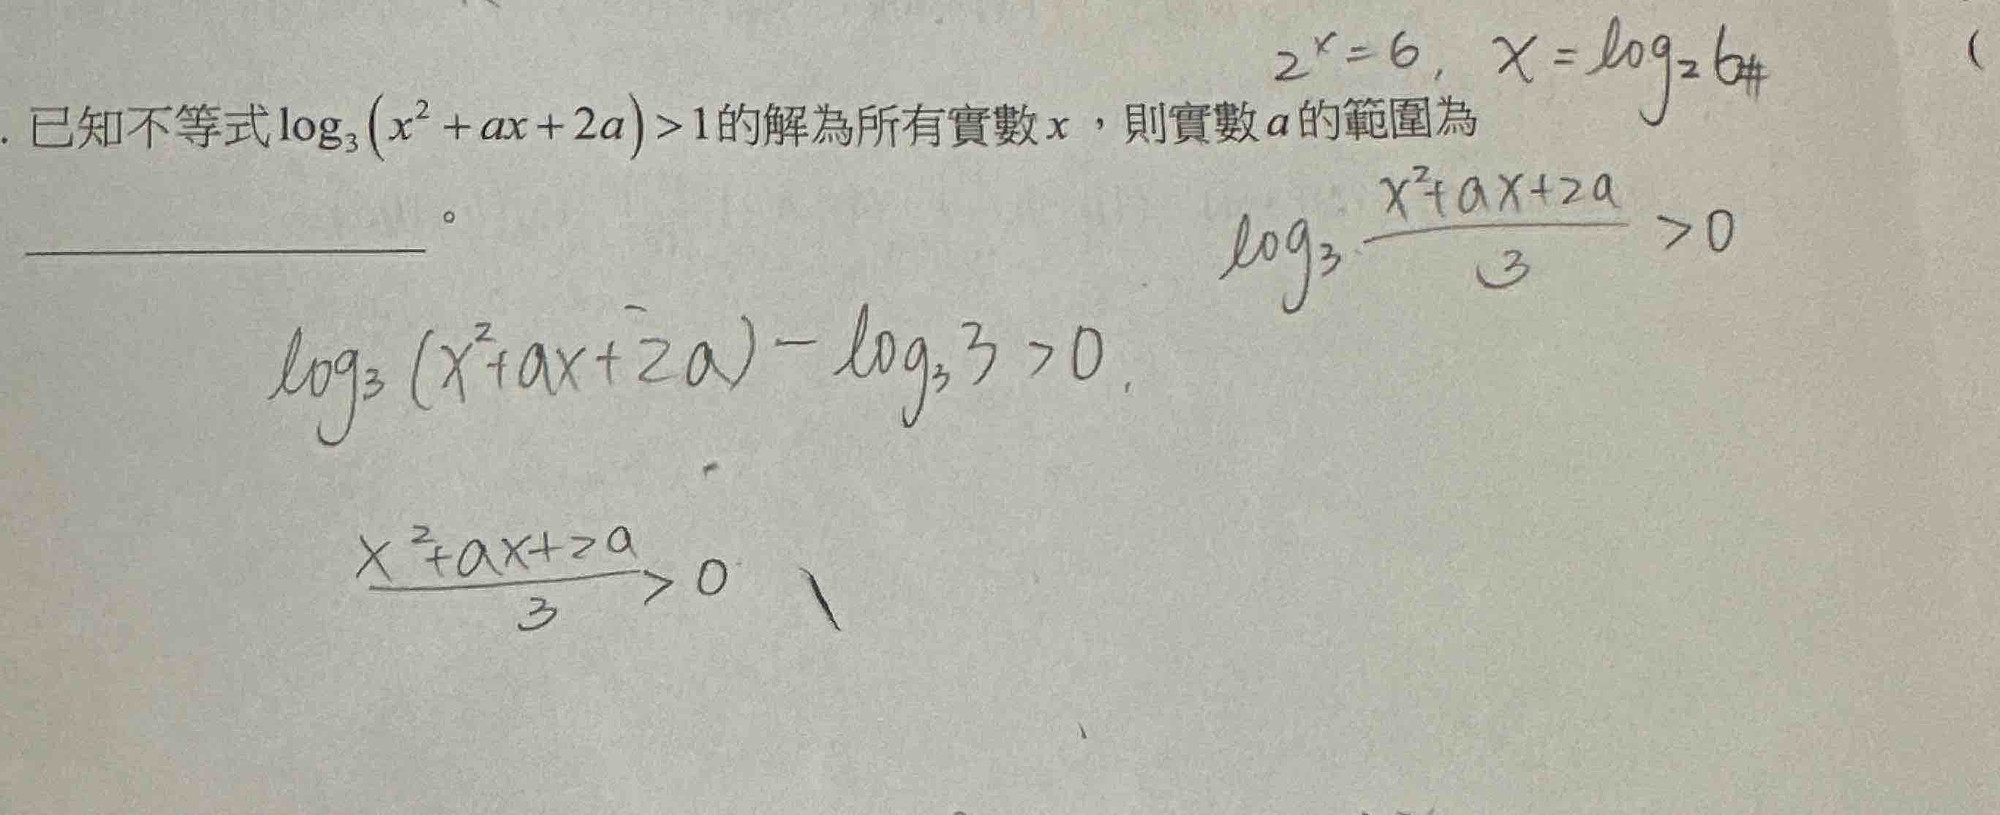 2^x = 6, x = log₂6#
. 已知不等式 log₃(x² + ax + 2a) > 1 的解為所有實數 x，則實數 a 的範圍為
________。
log₃ (x²+ax+2a)/3 > 0
log₃(x²+ax+2a) - log₃3 > 0,
(x²+ax+2a)/3 > 0